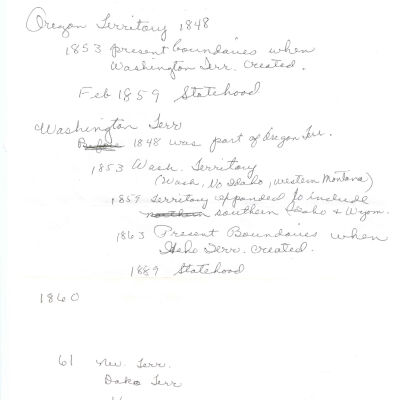 Oregon Territory 1848
1853 present boundaries when
Washington Terr. created.
Feb 1859 Statehood
Washington Terr
Before 1848 was part of Oregon Terr.
1853 Wash. Territory
(Wash, No Idaho, western Montana)
1859 Territory expanded to include
northern southern Idaho & Wyom.
1863 Present Boundaries when
Idaho Terr. created.
1889 Statehood
1860
61 Nev. Terr.
Dako Terr